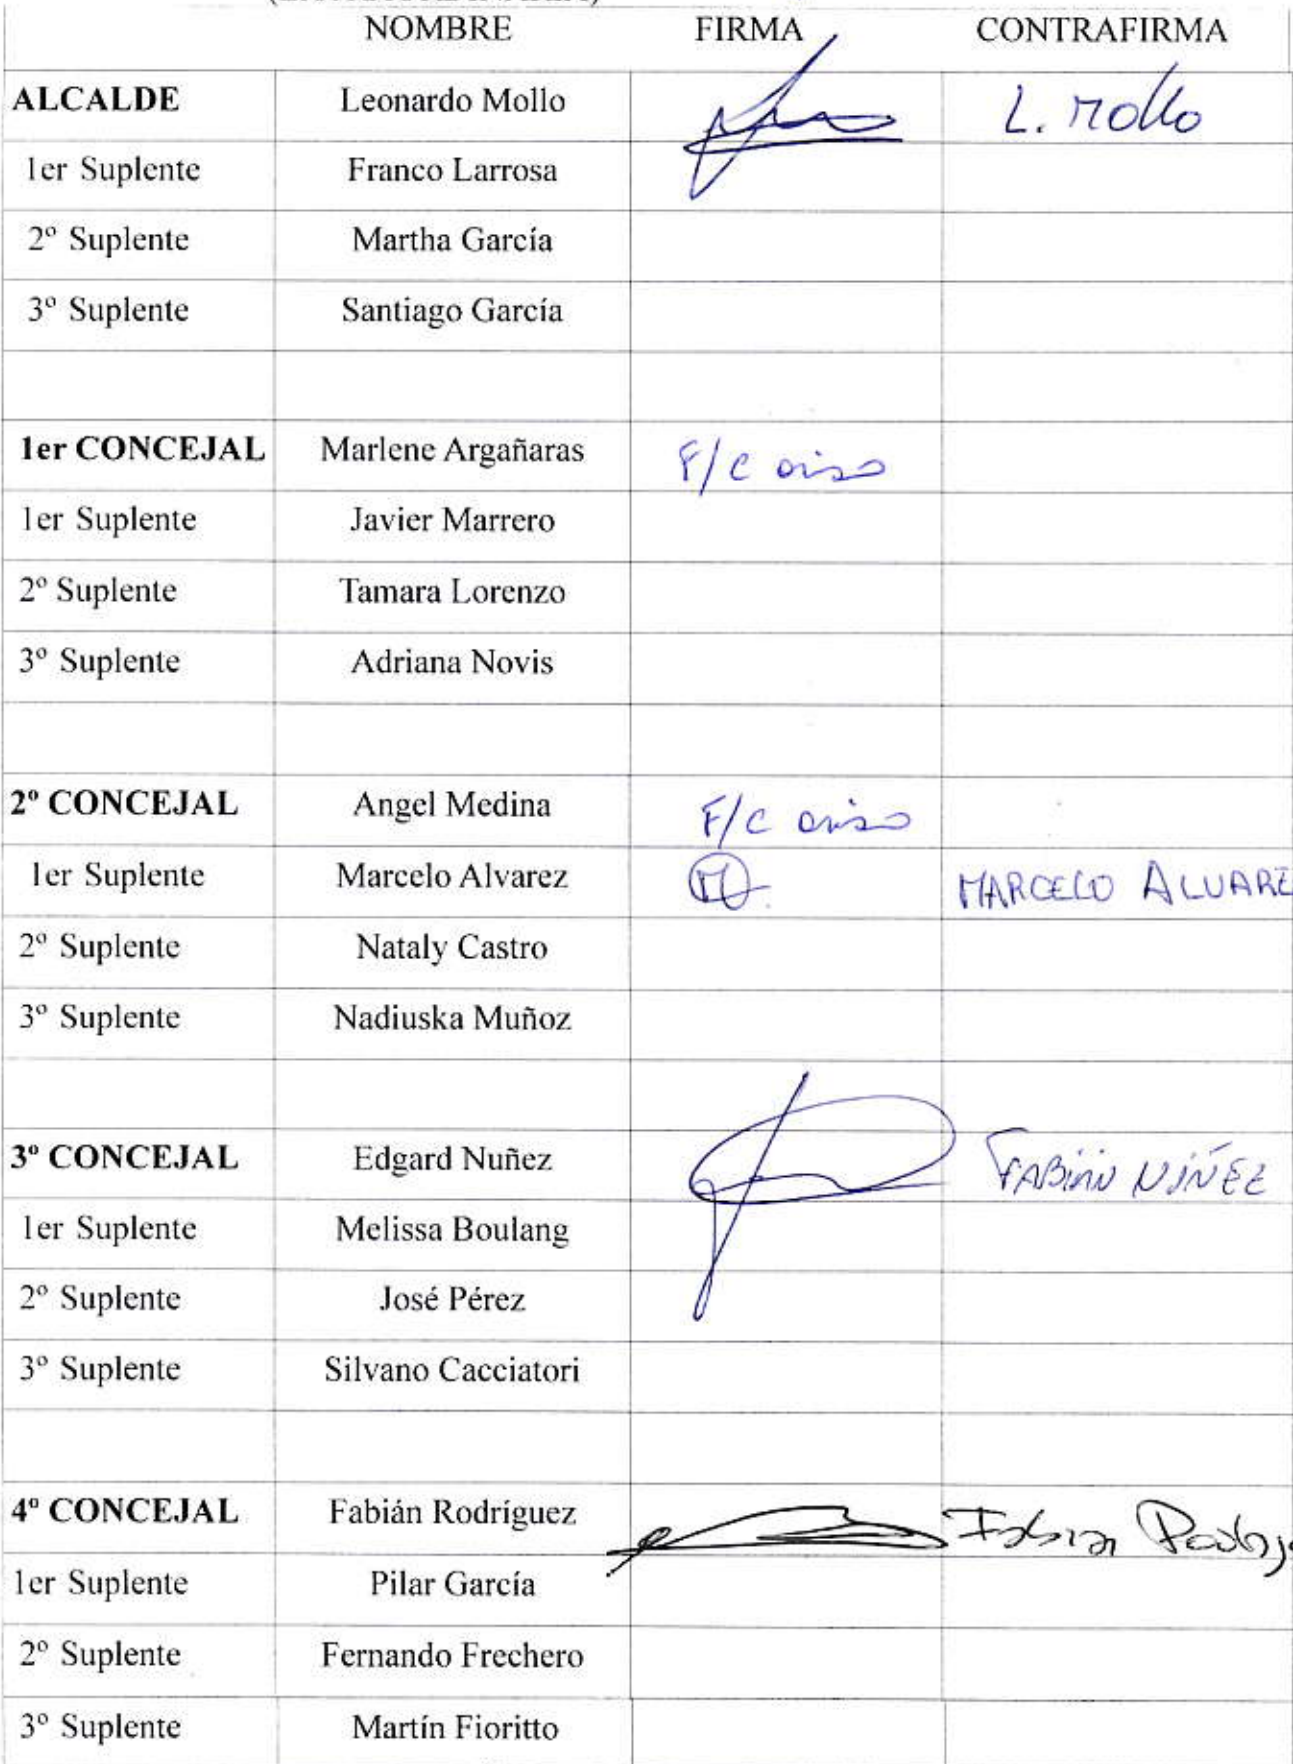 NOMBRE FIRMA CONTRAFIRMA
ALCALDE Leonardo Mollo L. Mollo
1er Suplente Franco Larrosa
2º Suplente Martha García
3º Suplente Santiago García
1er CONCEJAL Marlene Argañaras F/C aviso
1er Suplente Javier Marrero
2º Suplente Tamara Lorenzo
3º Suplente Adriana Novis
2º CONCEJAL Angel Medina F/C aviso
1er Suplente Marcelo Alvarez MARCELO ALVARE
2º Suplente Nataly Castro
3º Suplente Nadiuska Muñoz
3º CONCEJAL Edgard Nuñez FABIÁN NÚÑEZ
1er Suplente Melissa Boulang
2º Suplente José Pérez
3º Suplente Silvano Cacciatori
4º CONCEJAL Fabián Rodríguez Fabian
1er Suplente Pilar García
2º Suplente Fernando Frechero
3º Suplente Martín Fioritto